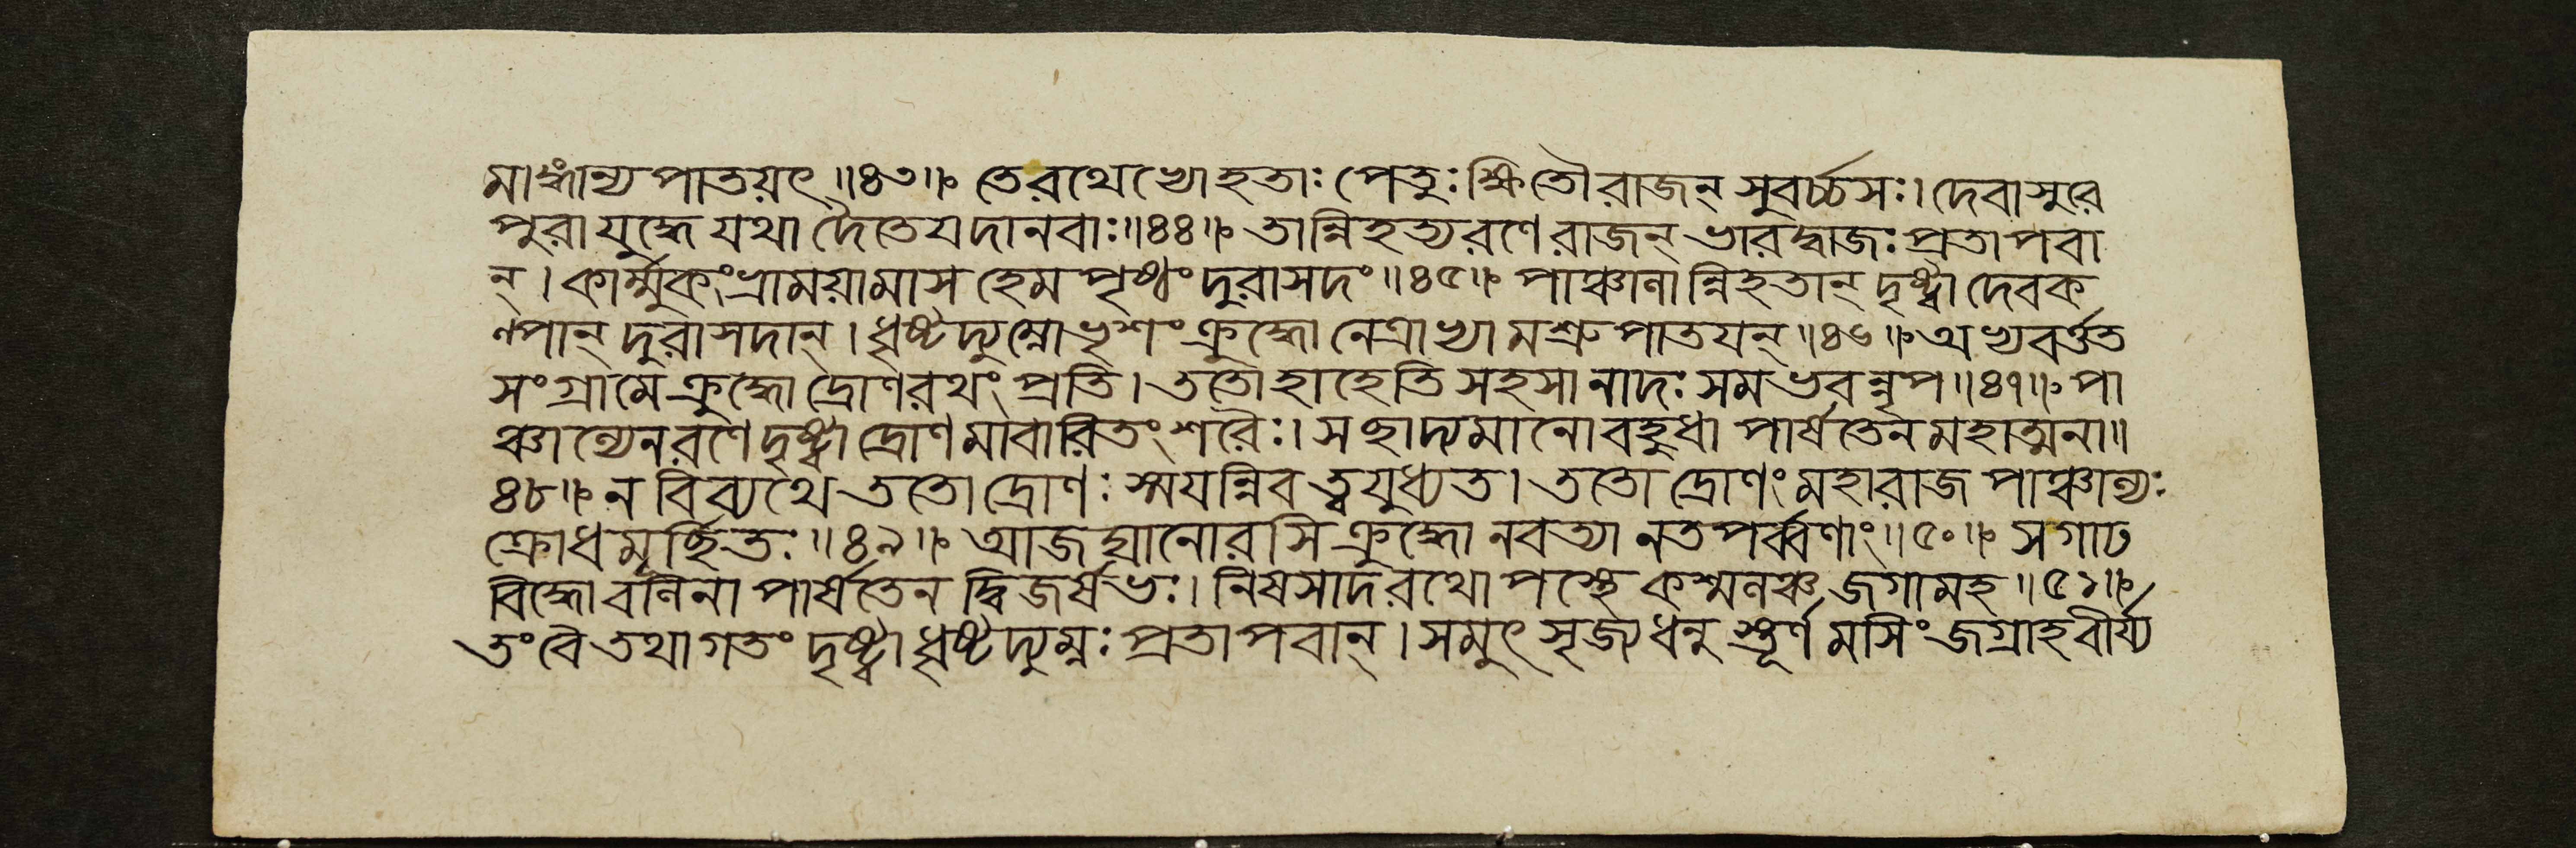 মাহ্বান্যপাতয়ৎ॥৪৩॥ তেরথেভ্যোহতাঃ পেতুঃ ক্ষিতৌরাজন্ সুবর্চ্চসঃ। দেবাসুরে
পুরাযুদ্ধে যথা দৈতেযদানবাঃ॥৪৪॥ তান্নিহত্যরণেরাজন্ ভারদ্বাজঃ প্রতাপবা
ন্। কার্ম্মুকংভ্রাময়ামাস হেমপৃষ্ঠংদুরাসদং॥৪৫॥ পাঞ্চালান্নিহতান্ দৃষ্ট্বা দেবক
ল্পান্ দুরাসদান্। ধৃষ্টদ্যুম্নোভৃশংক্রুদ্ধোনেত্রাভ্যামশ্রুপাতযন্॥৪৬॥ অভ্যবর্ত্তত
সংগ্রামেক্রুদ্ধোদ্রোণরথং প্রতি। ততোহাহেতিসহসানাদঃ সমভবন্নৃপ॥৪৭॥ পা
ঞ্চাল্যেনরণেদৃষ্ট্বা দ্রোণমাবারিতংশরৈঃ। সংছাদ্যমানোবহুধা পার্ষতেনমহাত্মনা॥
৪৮॥ ন বিব্যথে ততোদ্রোণঃ স্ময়ন্নিবত্বযুধ্যত। ততোদ্রোণংমহারাজ পাঞ্চাল্যঃ
ক্রোধমূর্ছিতঃ॥৪৯॥ আজঘানোরসিক্রুদ্ধোনবত্যা নতপর্ব্বণাং॥৫০॥ সগাঢ
বিদ্ধোবলিনা পার্ষতেন দ্বিজর্ষভঃ। নিষসাদরথোপস্থে কশ্মলঞ্চ জগামহ॥৫১॥
তংবৈতথাগতং দৃষ্ট্বা ধৃষ্টদ্যুম্নঃ প্রতাপবান্। সমুৎসৃজ্যধনুস্তূর্ণমসিংজগ্রাহবীর্য্য